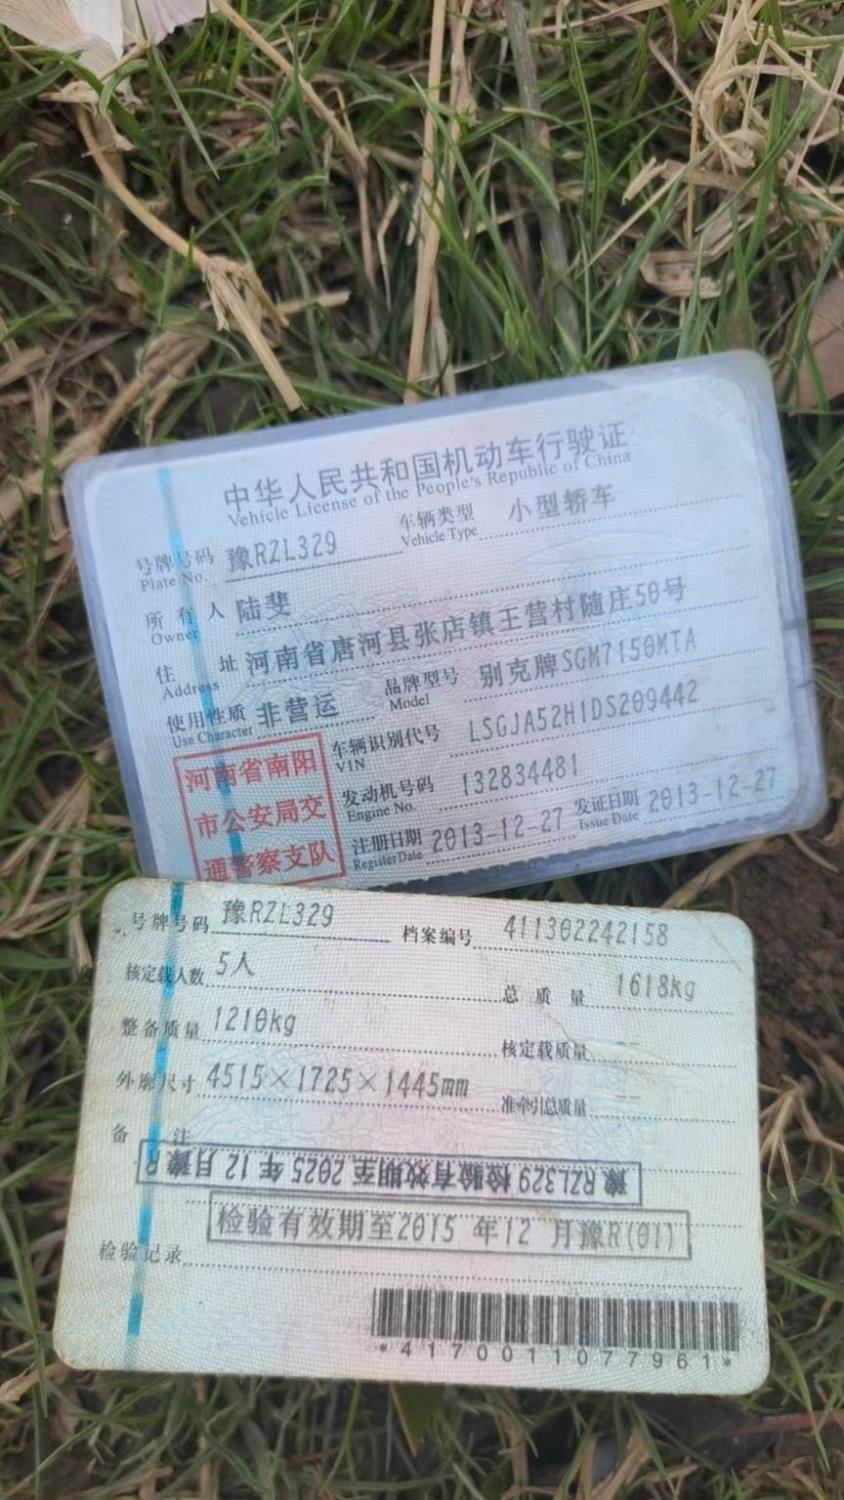 中华人民共和国机动车行驶证
Vehicle License of the People's Republic of China
号牌号码 豫RZL329 车辆类型 小型轿车
Plate No. Vehicle Type
所有人 陆斐
Owner
住址 河南省唐河县张店镇王营村随庄50号
Address
使用性质 非营运 品牌型号 别克牌SGM7150MTA
Use Character Model
河南省南阳
市公安局交
通警察支队
车辆识别代号 LSGJA52H1DS209442
VIN
发动机号码 132834481
Engine No.
注册日期 2013-12-27 发证日期 2013-12-27
Register Date Issue Date
号牌号码 豫RZL329 档案编号 411302242158
核定载人数 5人 总质量 1618kg
整备质量 1210kg 核定载质量 --
外廓尺寸 4515×1725×1445mm 准牵引总质量 --
备注
豫RZL329 检验有效期至2025年12月豫R
检验有效期至2015 年12 月豫R(01)
检验记录
*4170011077961*